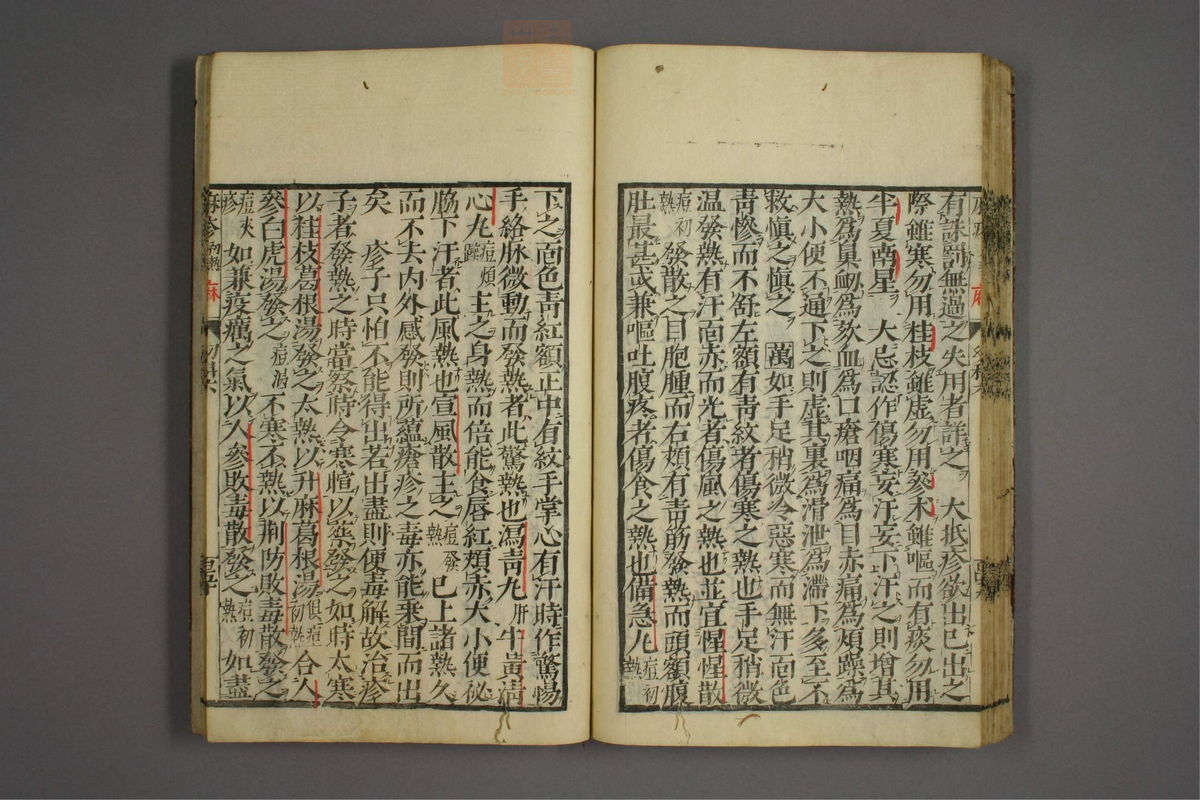 有誅罰無過之失用者詳之　大抵疹欲出已出之
際雖寒勿用桂枝雖虛勿用參朮雖嘔而有痰勿用
半夏南星　大忌認作傷寒妄汗妄下汗之則增其
熱為鼻衂為欬血為口瘡咽痛為目赤痛為煩躁為
大小便不通下之則虛其裏為滑泄為滯下多至不
救慎之慎之　萬如手足稍微冷惡寒而無汗面色
青慘而不舒左額有青紋者傷寒之熱也手足稍微
温發熱有汗面赤而光者傷風之熱也並宜惺惺散
痘初熱發散之目胞腫而右頰有青筋發熱而頭額腹
肚最甚或兼嘔吐腹疼者傷食之熱也備急丸痘初熱
下之面色青紅額正中有紋手掌心有汗時作驚惕
手絡脉微動而發熱者此驚熱也瀉青丸肝牛黄清
心丸痘煩躁主之身熱而倍能食唇紅頰赤大小便秘
脇下汗者此風熱也宣風散主之痘發熱已上諸熱久
而不去内外感發則所蘊瘡疹之毒亦能乘間而出
矣　疹子只怕不能得出若出盡則便毒解故治疹
子者發熱之時當察時令寒暄以藥發之如時太寒
以桂枝葛根湯發之太熱以升麻葛根湯俱痘初熱合人
參白虎湯發之痘渴不寒不熱以荆防敗毒散發之
痘夾疹如兼疫癘之氣以人參敗毒散發之痘初熱如盡